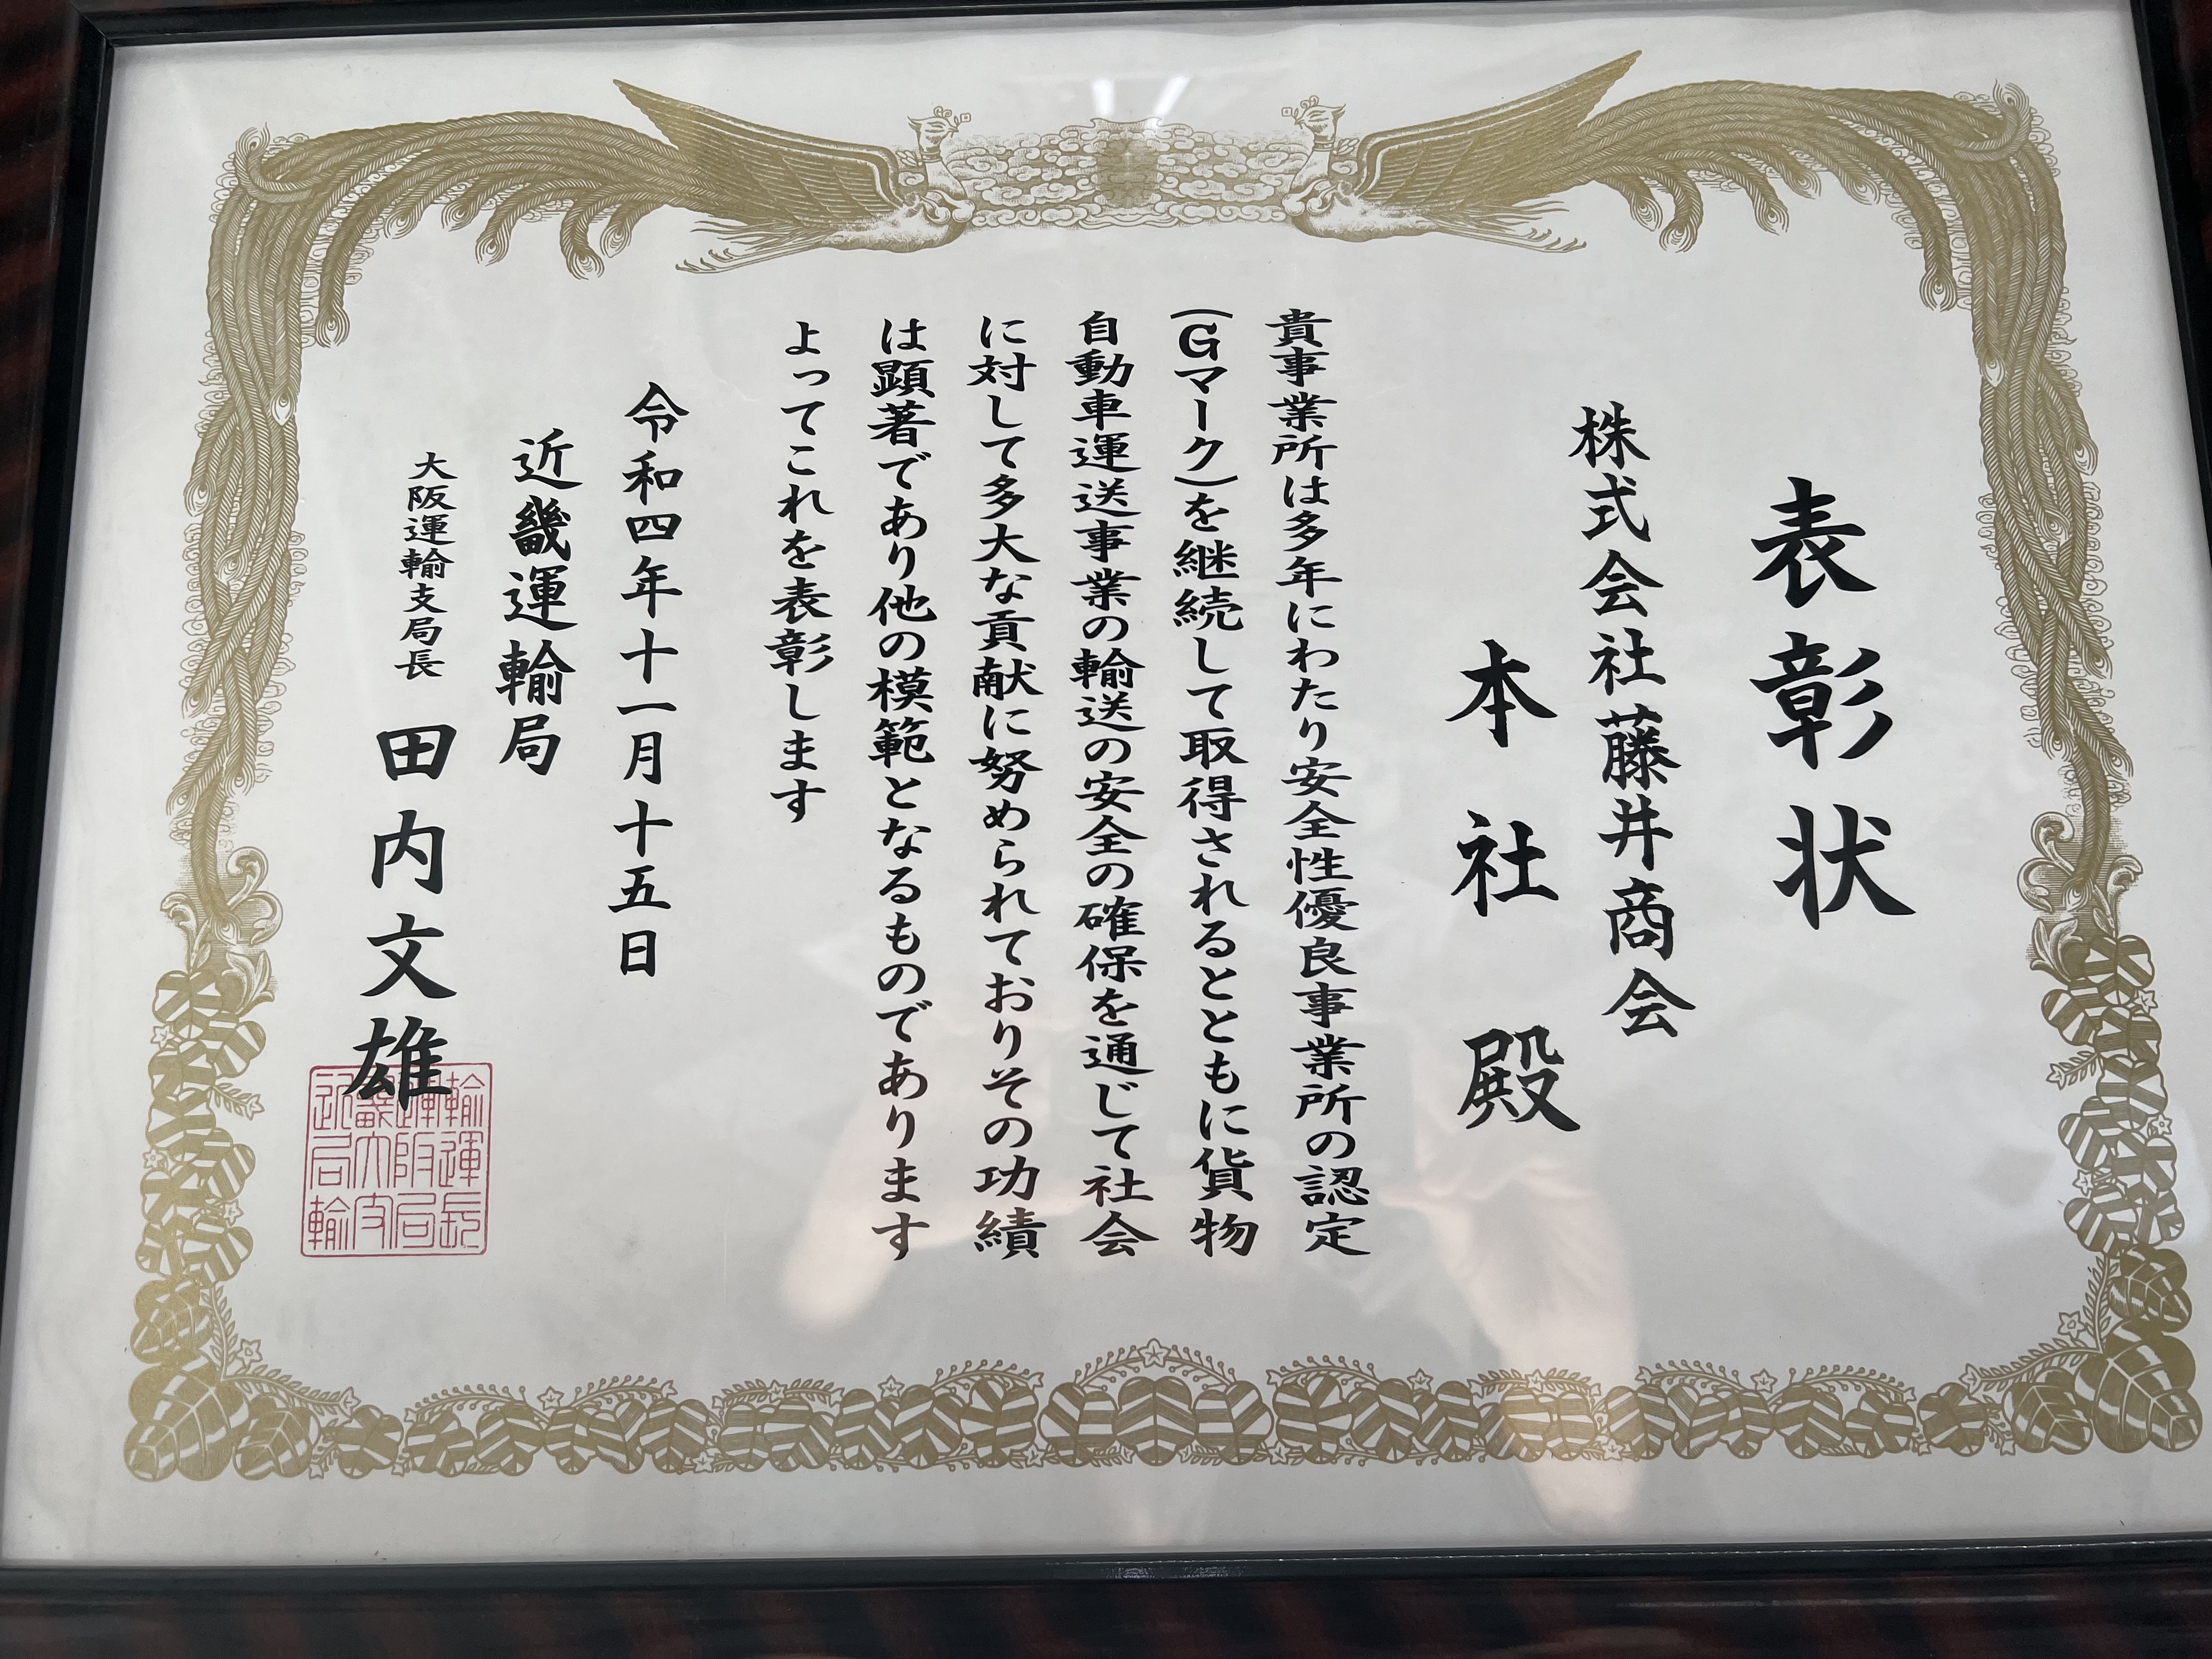 表彰状
株式会社藤井商会
本社殿
貴事業所は多年にわたり安全性優良事業所の認定
(Gマーク)を継続して取得されるとともに貨物
自動車運送事業の輸送の安全の確保を通じて社会
に対して多大な貢献に努められておりその功績
は顕著であり他の模範となるものであります
よってこれを表彰します
令和四年十一月十五日
近畿運輸局
大阪運輸支局長 田内文雄